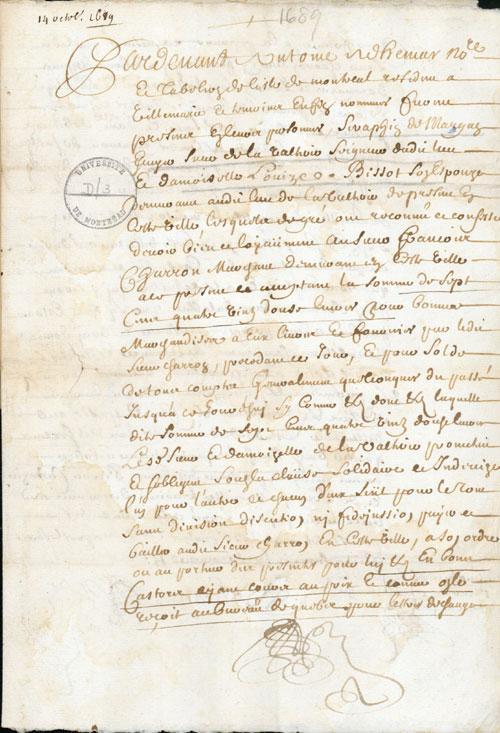 14 octob. 1689
1689
Pardevant Antoine Adhemar no.re
Et Tabelion de l'isle de montreal residant a
villemarie et temoins En fin nommez furent
presens Seraphin de Margane
Sieur de la Valtrie Seigneur dudit lieu
Et damoiselle Louize Bissot Son Espouze
demeurans audit lieu de la Valtrie de present En
Cette ville, lesquels de gré ont reconnu et confessé
devoir bien et loyaument au Sieur François
Charron Marchand demeurant En Cette ville
a ce present et acceptant la Somme de Sept
Cens quatre vinz douze livres pour bonnes
Marchandises a Eux livrées Et fournies par ledit
Sieur charron, precedant ce Jour, Et pour Solde
de tout compte Generalement quelconques du passé
Jusqu'a ce Jourd'huy
ditte Somme de Sept Cens quatre vinz douze livres
Sieur Et damoizelle de la Valtrie promettent
Et Sobligent Solidairement
l'un pour l'autre Et chacun d'eux Seul pour le tout
Sans division discution ny fidejussion, payer et
bailler audit Sieur charron En Cette ville, a son ordre
ou au porteur des presentes pour luy En bons
Castors
reçoit au bureau de quebec, pour lettres de change
UNIVERSITÉ
D/3
DE MONTRÉAL